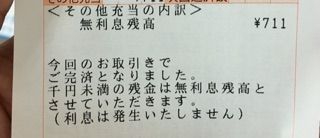 ＜その他充当の内訳＞
無利息残高 ¥711
今回のお取引きで
ご完済となりました。
千円未満の残金は無利息残高と
させていただきます。
(利息は発生いたしません)